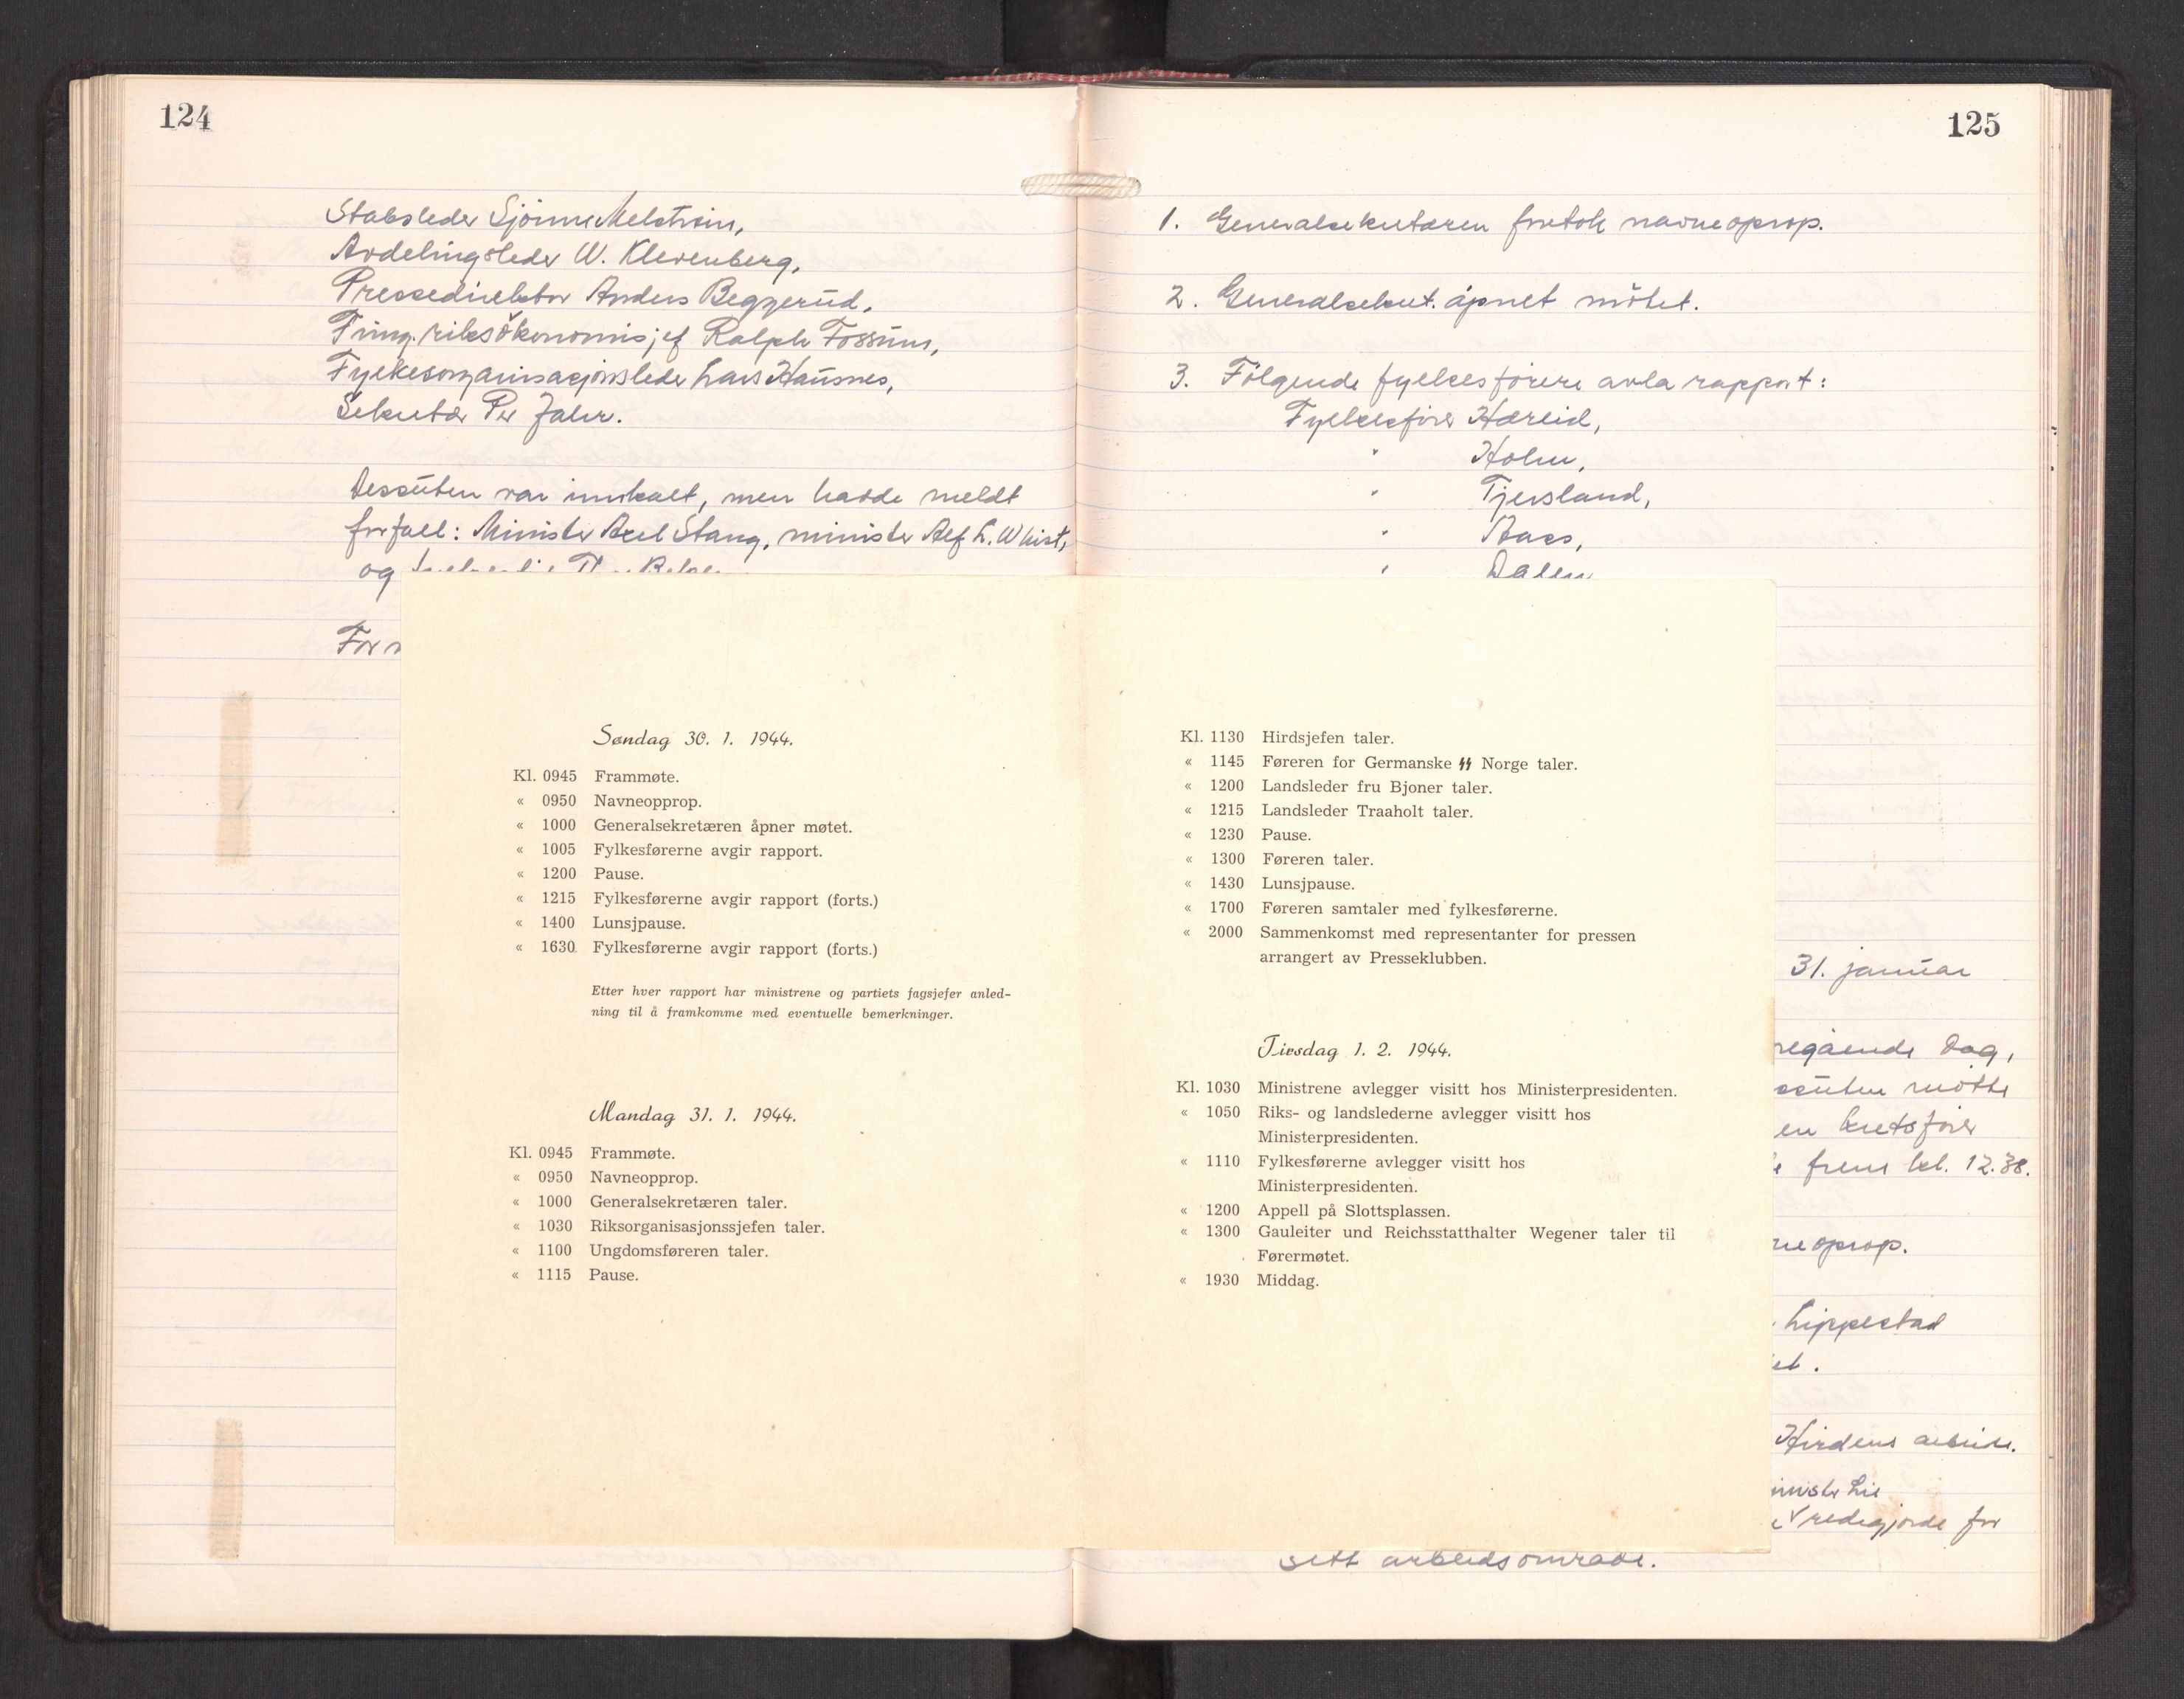 124
Stabsleder Sjönne Melstrøm,
Avdelingsleder W. Klevenberg,
Pressedirektør Anders Beggerud,
Fung. riksökonomisjef Ralph Fossum,
Fylkesorganisasjonsleder Lars Hausnes,
Sekretær Per Jahr.
Dessuten var innkalt, men hadde meldt
forfall: Minister Axel Stang, minister Alf L. Whist,
og
For
Søndag 30. 1. 1944.
Kl. 0945 Frammøte.
« 0950 Navneopprop.
« 1000 Generalsekretæren åpner møtet.
« 1005 Fylkesførerne avgir rapport.
« 1200 Pause.
« 1215 Fylkesførerne avgir rapport (forts.)
« 1400 Lunsjpause.
« 1630 Fylkesførerne avgir rapport (forts.)
Etter hver rapport har ministrene og partiets fagsjefer anled-
ning til å framkomme med eventuelle bemerkninger.
Mandag 31. 1. 1944.
Kl. 0945 Frammøte.
« 0950 Navneopprop.
« 1000 Generalsekretæren taler.
« 1030 Riksorganisasjonssjefen taler.
« 1100 Ungdomsføreren taler.
« 1115 Pause.
125
1. Generalsekretæren foretok navneoprop.
2. Generalsekret. åpnet mötet.
3. Følgende fylkesförere avla rapport:
Fylkesförer Hæreid,
" Holm,
" Tjersland,
" Aaes,
" Dalen
Kl. 1130 Hirdsjefen taler.
« 1145 Føreren for Germanske ᛋᛋ Norge taler.
« 1200 Landsleder fru Bjoner taler.
« 1215 Landsleder Traaholt taler.
« 1230 Pause.
« 1300 Føreren taler.
« 1430 Lunsjpause.
« 1700 Føreren samtaler med fylkesførerne.
« 2000 Sammenkomst med representanter for pressen
arrangert av Presseklubben.
Tirsdag 1. 2. 1944.
Kl. 1030 Ministrene avlegger visitt hos Ministerpresidenten.
« 1050 Riks- og landslederne avlegger visitt hos
Ministerpresidenten.
« 1110 Fylkesførerne avlegger visitt hos
Ministerpresidenten.
« 1200 Appell på Slottsplassen.
« 1300 Gauleiter und Reichsstatthalter Wegener taler til
Førermøtet.
« 1930 Middag.
31. januar
regående dag,
ssuten mötte
en kretsförer
frem kl. 12.38.
neoprop.
Lippestad
et.
Hirdens arbeide.
inister Lie
redegjorde for
sitt arbeidsområde.